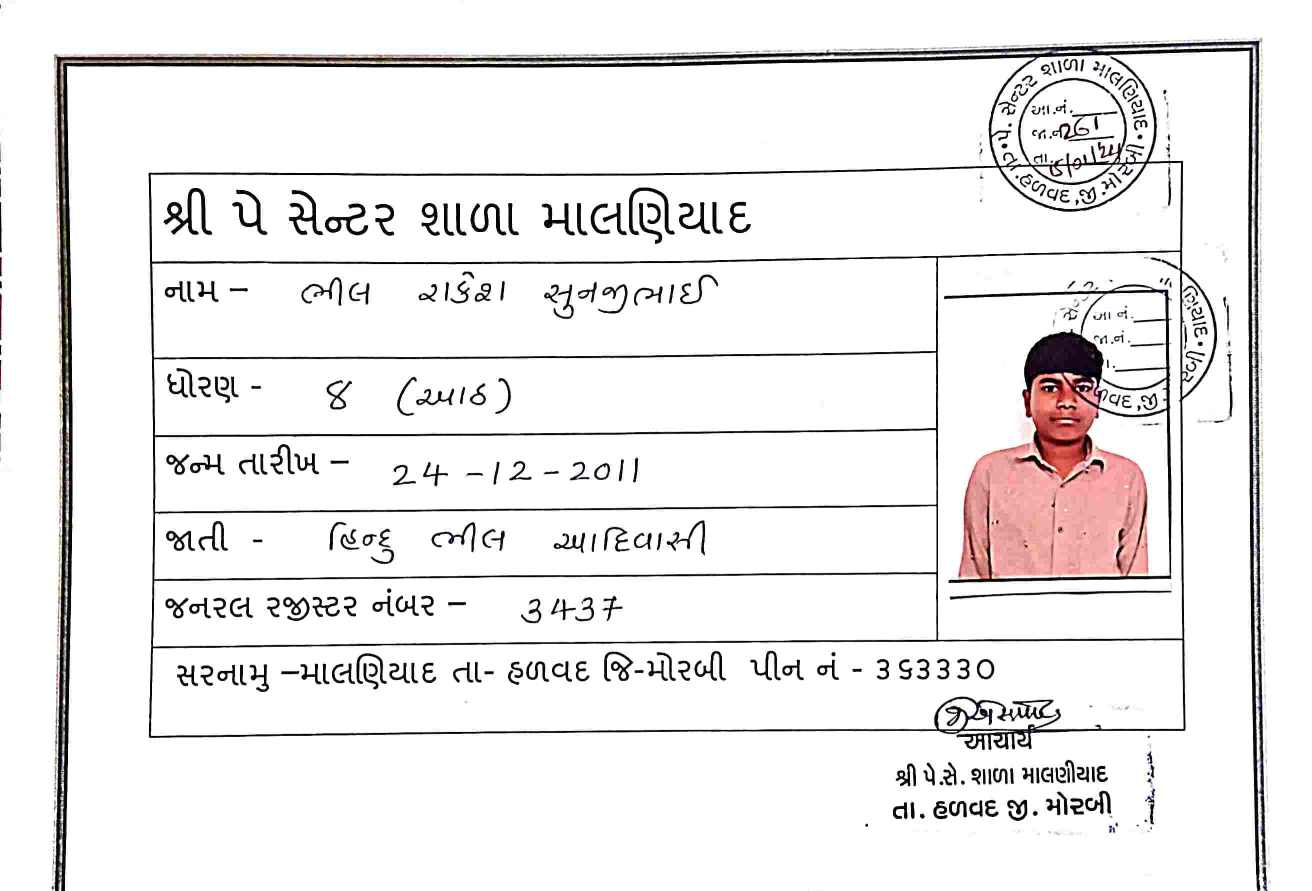 પે. સેન્ટર શાળા માલણિયાદ
આ.નં.
જા.નં 261
તા.
તા. હળવદ, જી. મોરબી
શ્રી પે સેન્ટર શાળા માલણિયાદ
નામ – ભીલ રાકેશ સુનજીભાઈ
આ નં.
જા.નં.
ધોરણ - ૪ (આઠ)
જન્મ તારીખ – 24 -12 - 2011
જાતી - હિન્દુ ભીલ આદિવાસી
જનરલ રજીસ્ટર નંબર – 3437
સરનામુ –માલણિયાદ તા- હળવદ જિ-મોરબી પીન નં - ૩૬૩૩૩૦
આચાર્ય
શ્રી પે.સે. શાળા માલણીયાદ
તા. હળવદ જી. મોરબી